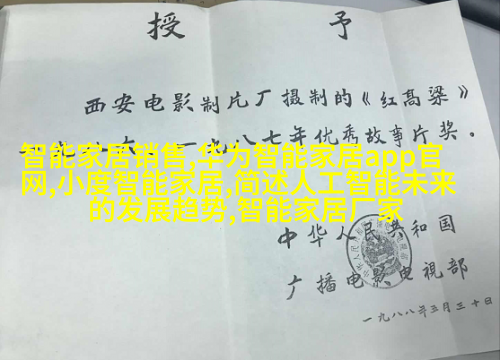 授予
西安电影制片厂摄制的《红高粱》
一九八七年优秀故事片奖。
智能家居销售,华为智能家居app官
网,小度智能家居,简述人工智能未来
的发展趋势,智能家居厂家
中华人民共和国
广播电影电视部
一九八八年三月三十日